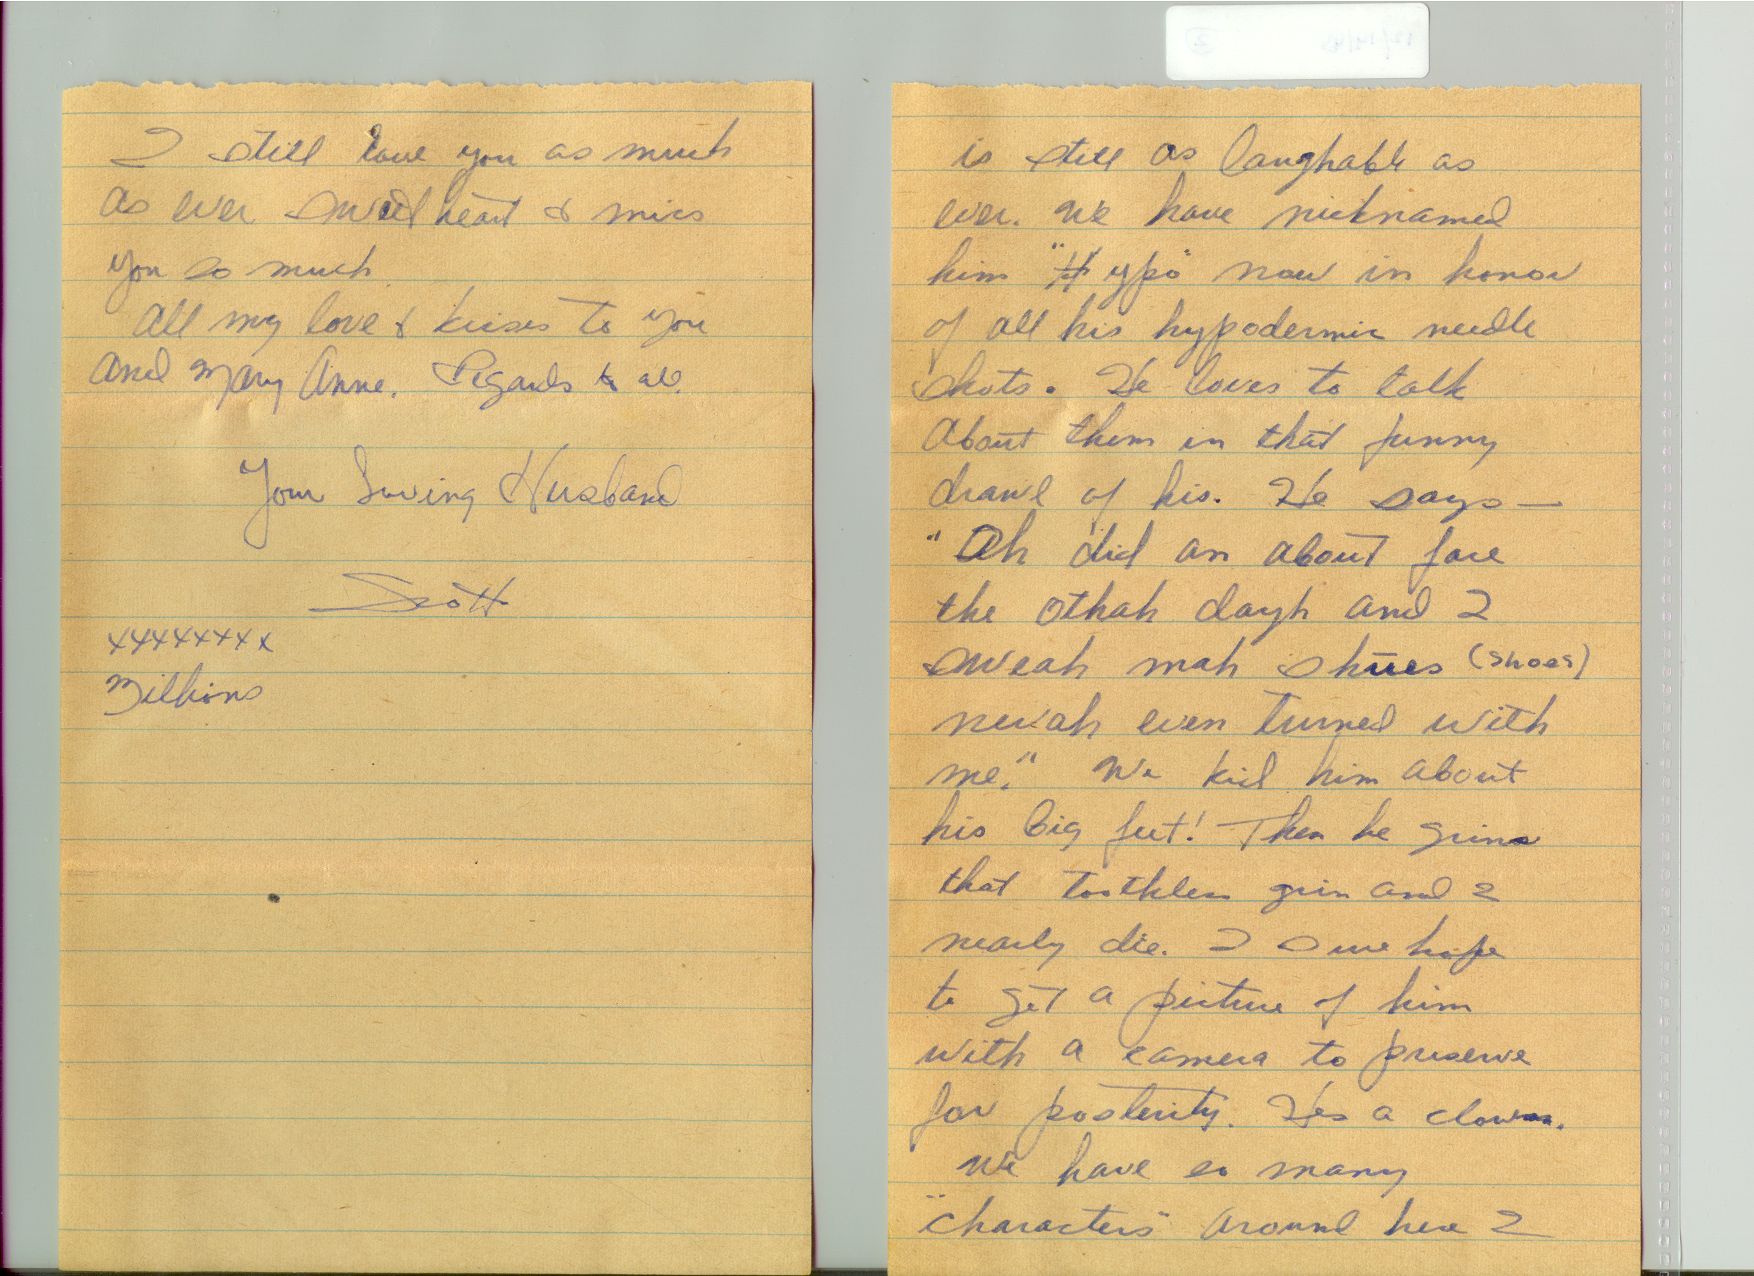 I still love you as much
as ever sweetheart & miss
you so much
All my love & kisses to you
and Mary Anne. Regards to all.
Your Loving Husband
Scott
xxxxxxxx
Millions
is still as laughable as
ever. We have nicknamed
him "Hypo" now in honor
of all his hypodermic needle
shots. He loves to talk
about them in that funny
drawl of his. He says —
"Ah did an about face
the othah dayh and I
sweah mah shües (shoes)
nevah even turned with
me." We kid him about
his big feet! Then he grins
that toothless grin and I
nearly die. I sure hope
to get a picture of him
with a camera to preserve
for posterity. He's a clown.
We have so many
"characters" around here I